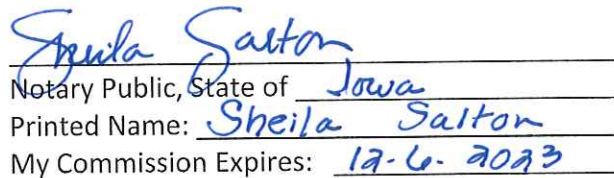 Sheila Salton
Notary Public, State of Iowa
Printed Name: Sheila Salton
My Commission Expires: 12-6-2023